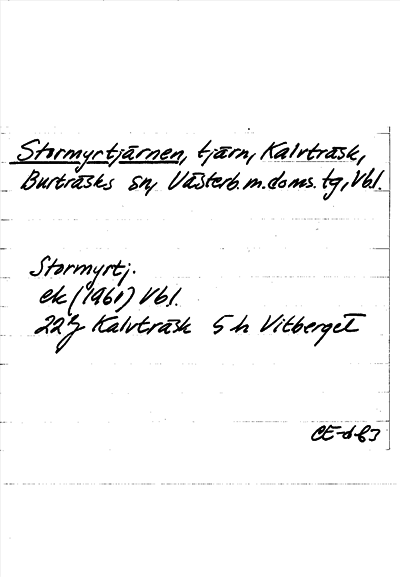 Stormyrtjärnen, tjärn, Kalvträsk,
Burträsks sn, Västerb.m.doms.tg, Vbl.
Stormyrtj.
ek (1961) Vbl.
22J Kalvträsk 5h Vitberget